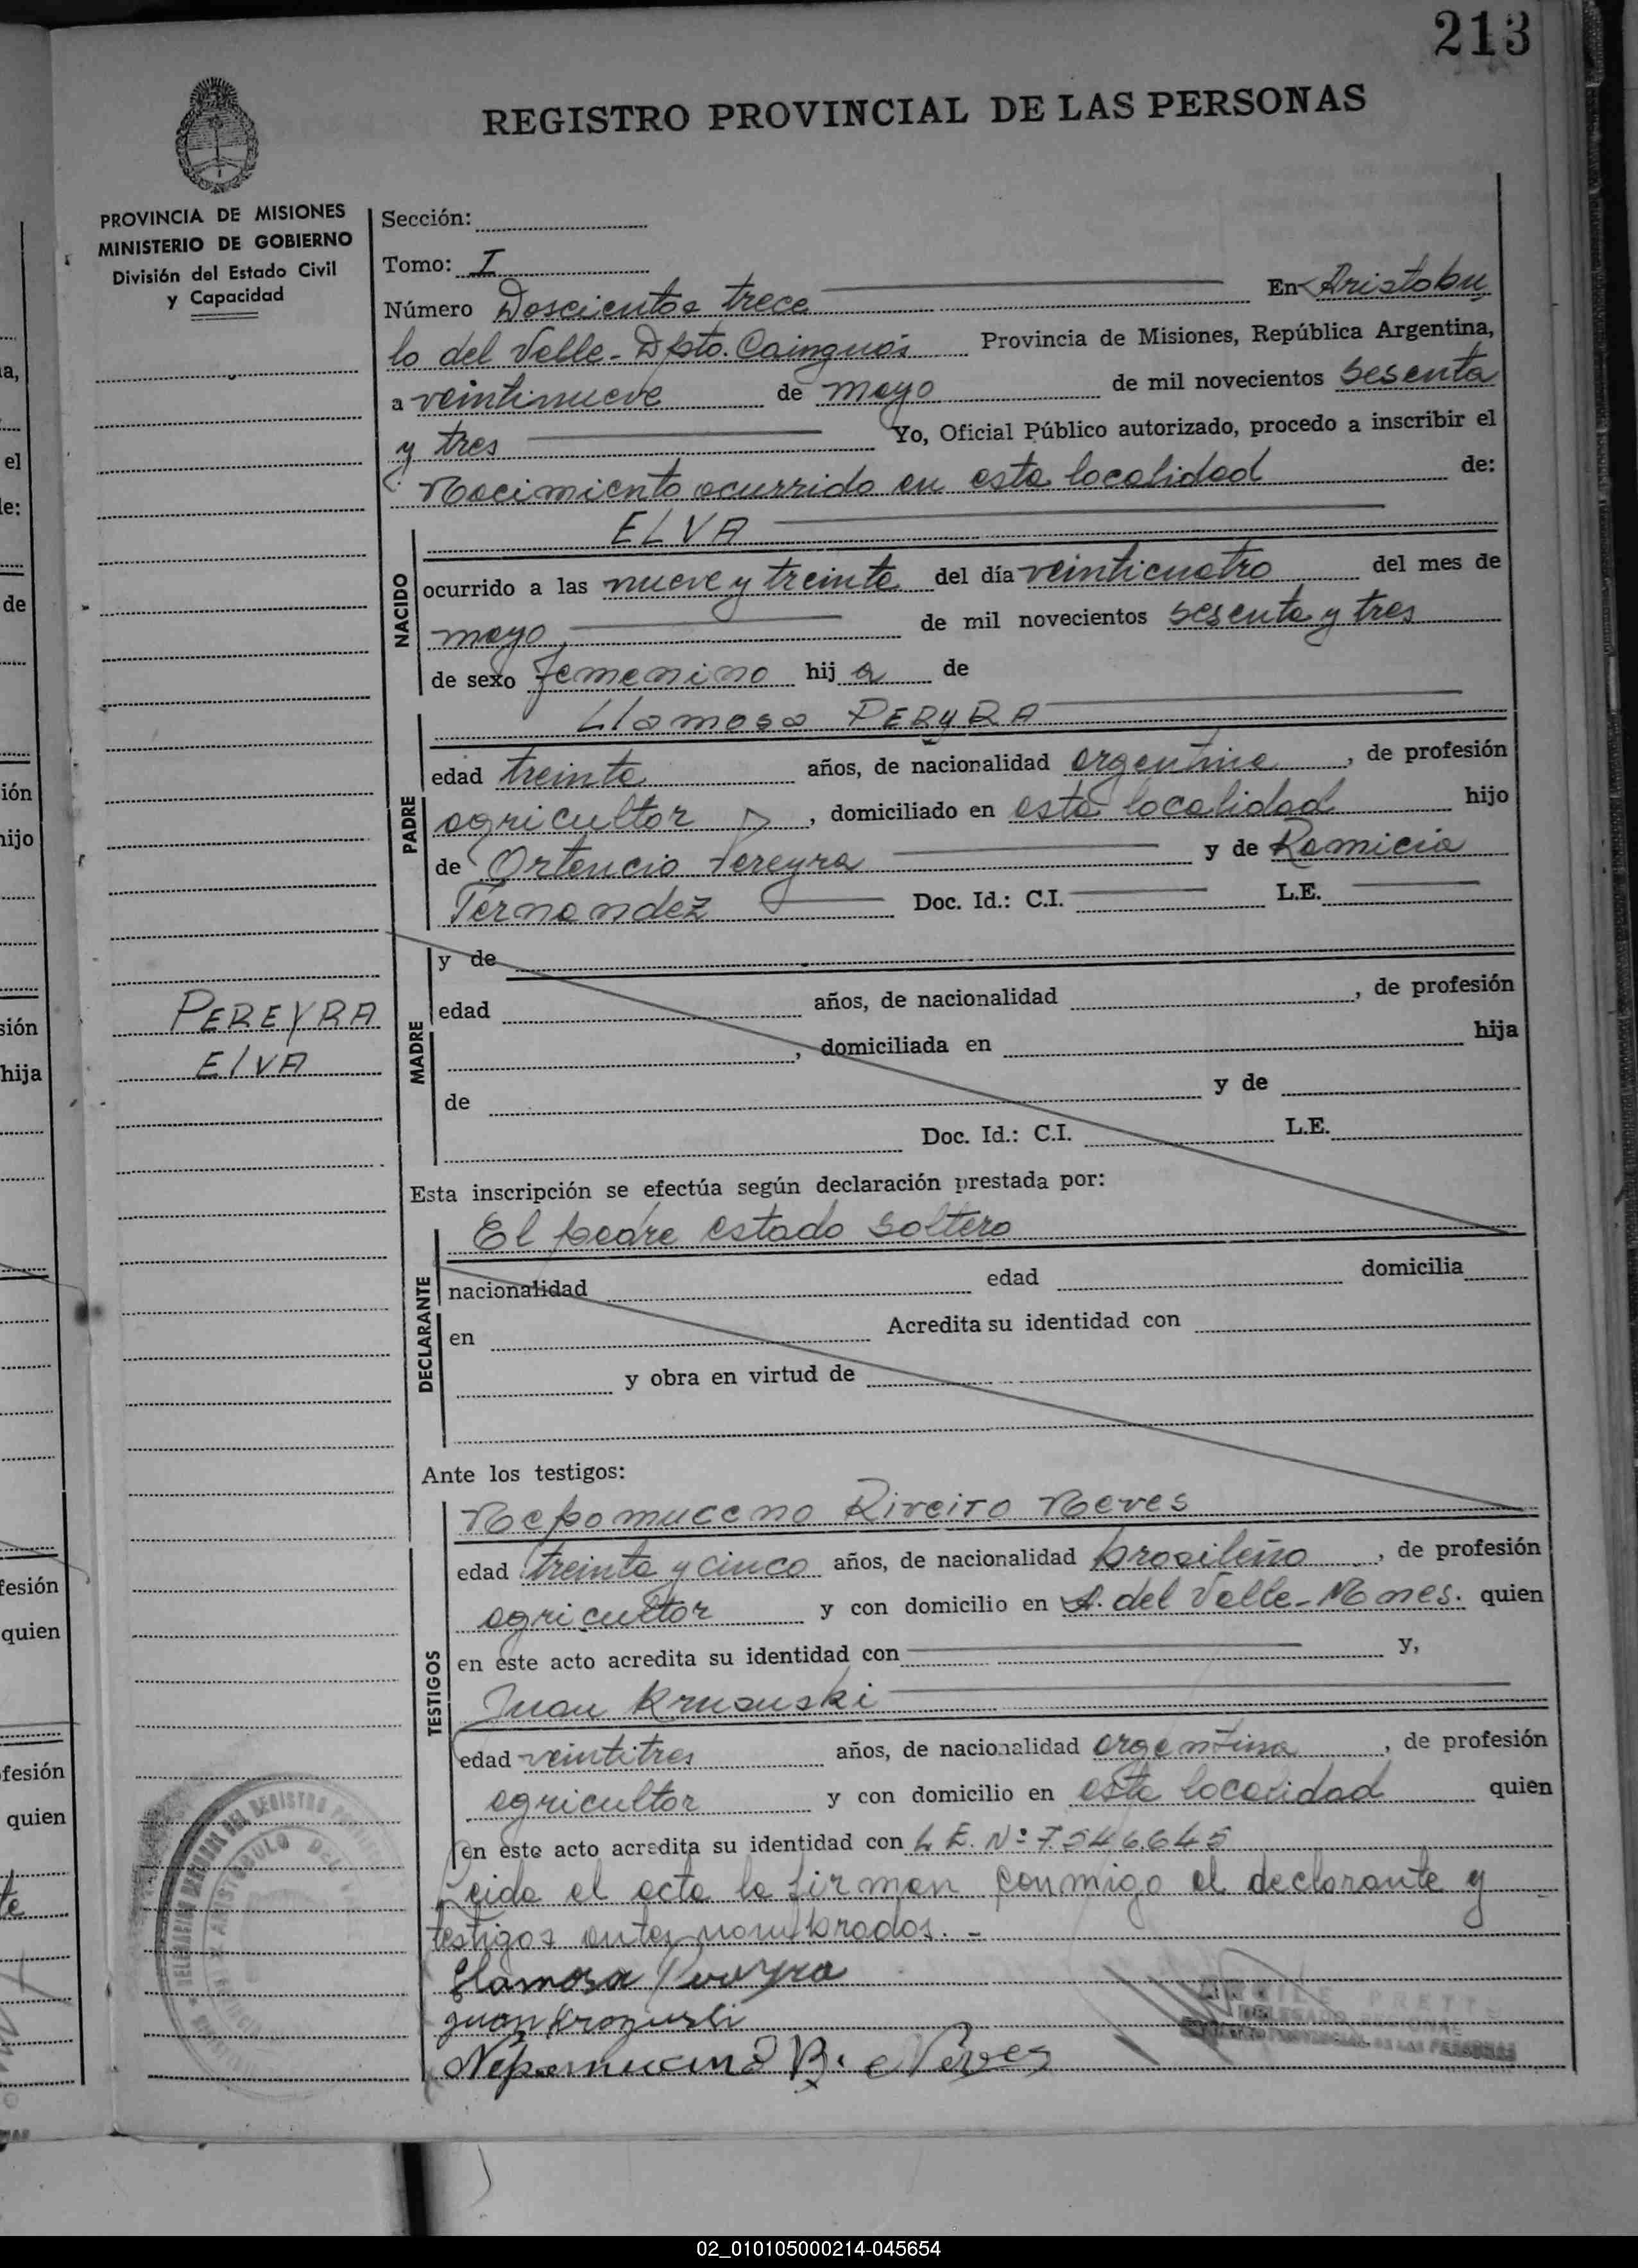 213
REGISTRO PROVINCIAL DE LAS PERSONAS
PROVINCIA DE MISIONES
MINISTERIO DE GOBIERNO
División del Estado Civil
y Capacidad
Sección:
Tomo: I
Número Doscientos trece En Aristobu
lo del Valle - Dpto. Cainguás Provincia de Misiones, República Argentina,
a veintinueve de mayo de mil novecientos sesenta
y tres Yo, Oficial Público autorizado, procedo a inscribir el
Nacimiento ocurrido en esta localidad de:
NACIDO
ELVA
ocurrido a las nueve y treinta del día veinticuatro del mes de
mayo de mil novecientos sesenta y tres
de sexo femenino hij a de
PADRE
Llamosa PERYRA
edad treinta años, de nacionalidad argentina, de profesión
agricultor, domiciliado en esta localidad hijo
de Ortencio Pereyra y de Ramicia
Fernandez Doc. Id.: C.I. L.E.
MADRE
y de
edad años, de nacionalidad , de profesión
, domiciliada en hija
de y de
Doc. Id.: C.I. L.E.
PEREYRA
ElVA
Esta inscripción se efectúa según declaración prestada por:
DECLARANTE
El padre estado soltero
nacionalidad edad domicilia
en Acredita su identidad con
y obra en virtud de
Ante los testigos:
TESTIGOS
Nepomuceno Riveiro Neves
edad treinta y cinco años, de nacionalidad brasileño, de profesión
agricultor y con domicilio en A. del Valle - Mnes. quien
en este acto acredita su identidad con y,
Juan Kruauski
edad veintitres años, de nacionalidad argentina, de profesión
agricultor y con domicilio en esta localidad quien
en este acto acredita su identidad con L.E. Nº 7.546.645
Leida el acta la firman conmigo el declarante y
testigos antes nombrados. -
Llamosa Pereyra
Juan
Nepomuceno R. Neves
DELEGADO REGIONAL
REGISTRO PROVINCIAL DE LAS PERSONAS
02_010105000214-045654